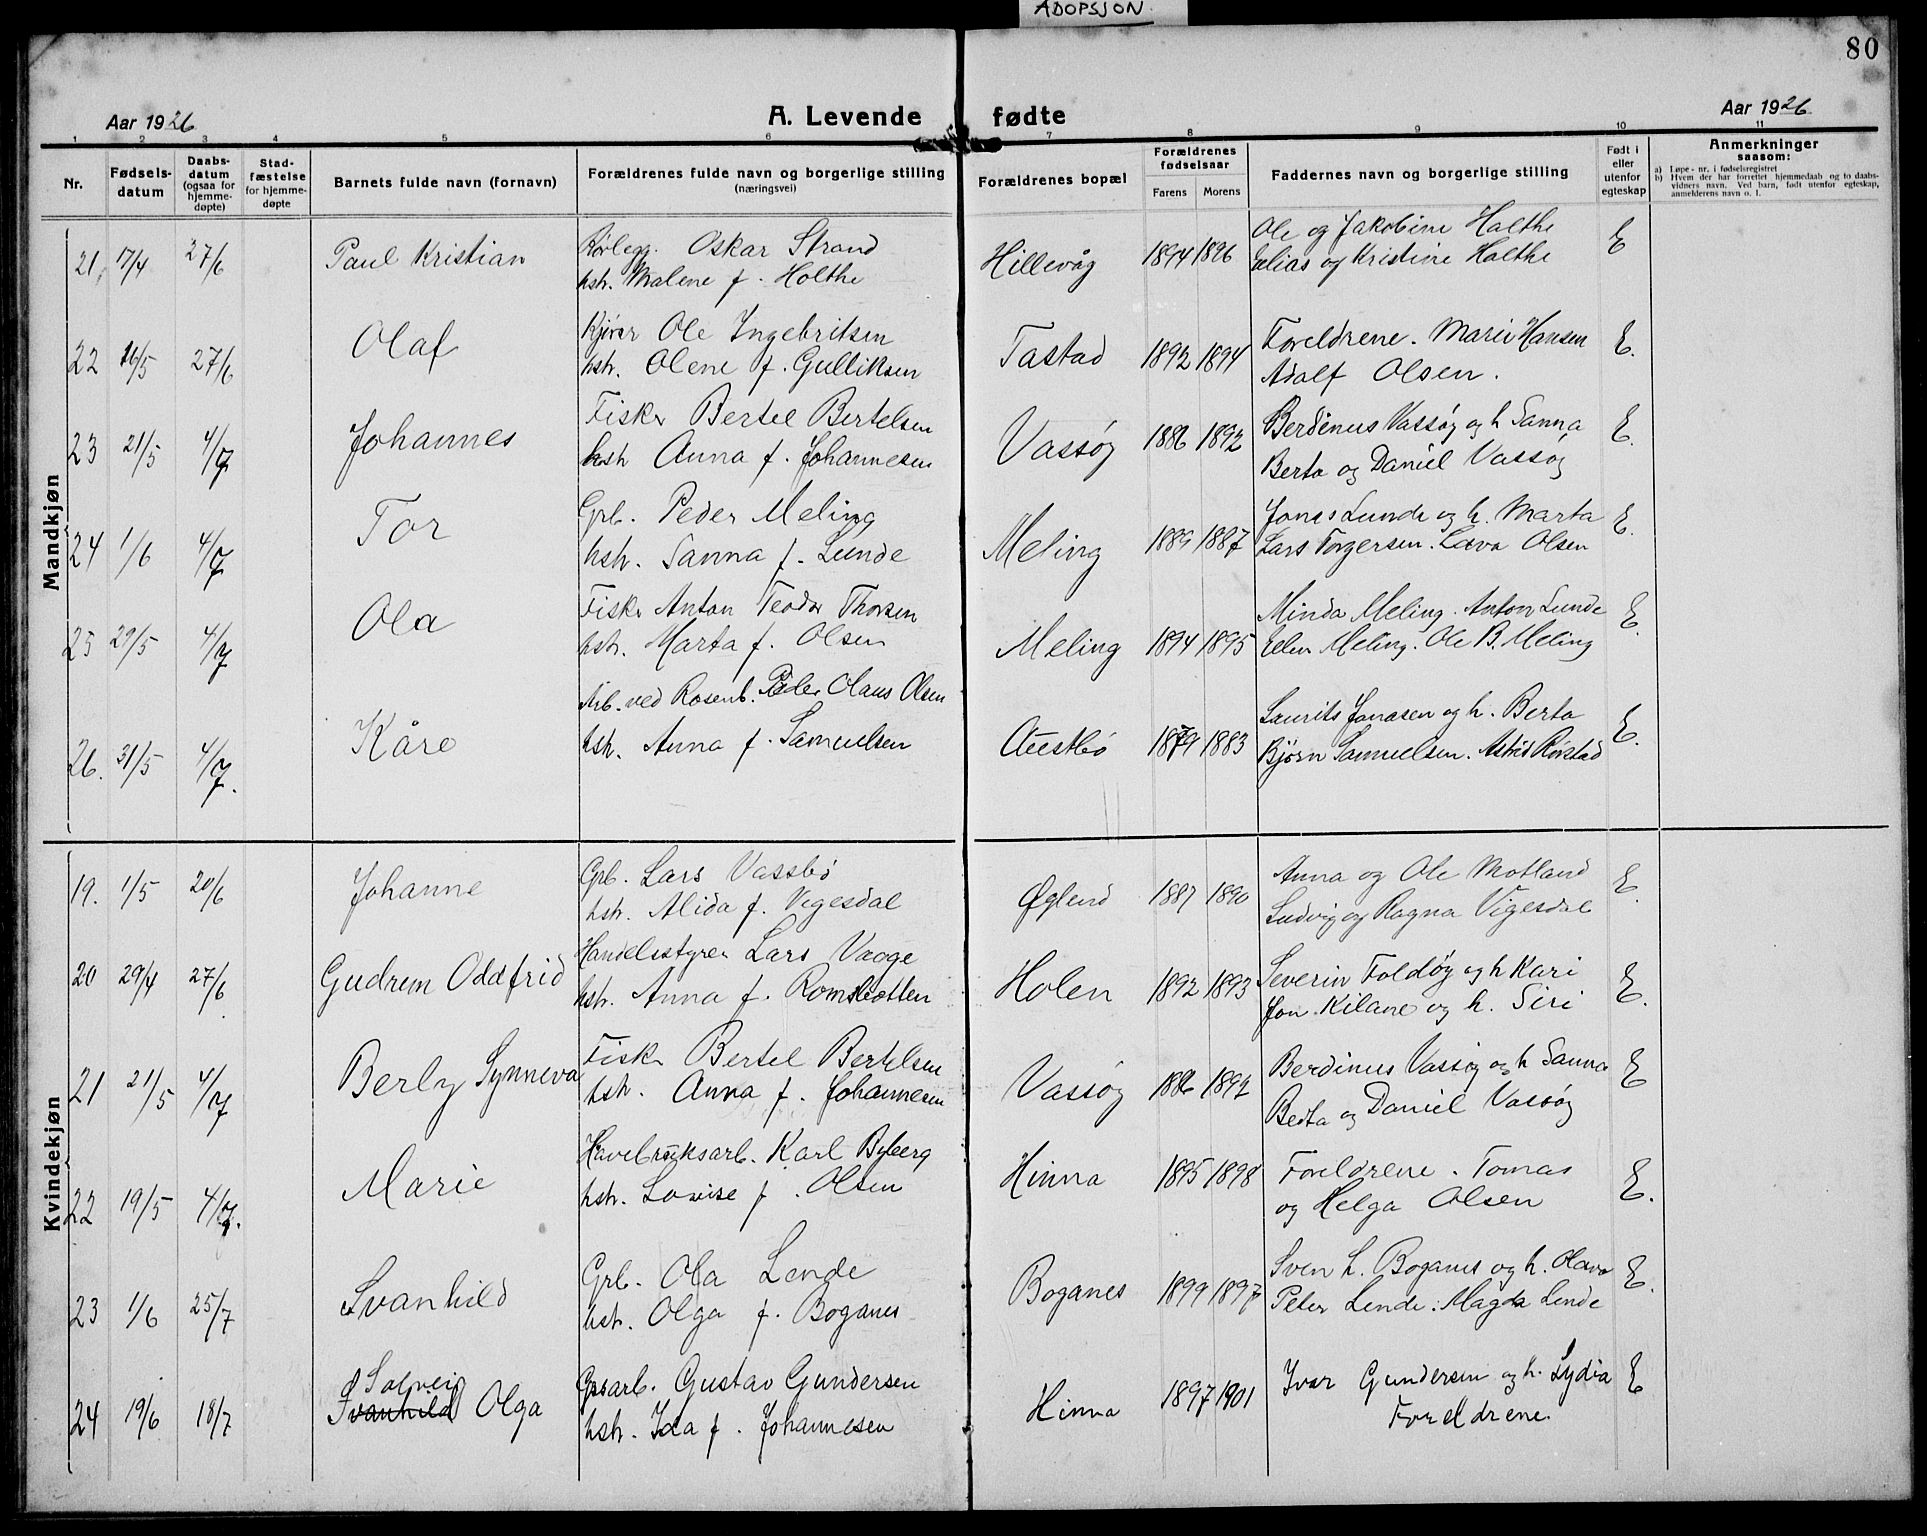 ADOPSJON.
80
Aar 1926
A. Levende fødte
Aar 1926
1 2 3 4 5 6 7 8 9 10 11
Nr.
Fødsels-
datum
Daabs-
datum
(ogsaa for
hjemme-
døpte)
Stad-
fæstelse
for hjemme-
døpte
Barnets fulde navn (fornavn)
Forældrenes fulde navn og borgerlige stilling
(næringsvei)
Forældrenes bopæl
Forældrenes
fødselsaar
Farens Morens
Faddernes navn og borgerlige stilling
Født i
eller
utenfor
egteskap
Anmerkninger
saasom:
a) Løpe-nr. i fødselsregistret
b) Hvem der har forrettet hjemmedaab og to daabs-
vidners navn. Ved barn, født utenfor egteskap,
anmelderens navn o. l.
Mandkjøn
21, 17/4 27/6 Paul Kristian Rørlegg. Oskar Strand Hillevåg 1894 1896 Ole og Jakobine Halthe E
hstr. Malene f. Holthe Elias og Kristine Halthe
22 16/5 27/6 Olaf Kjører Ole Ingebritsen Tastad 1892 1894 Foreldrene. Marie Hansen E.
hstr. Olene f. Gulliksen Adolf Olsen.
23 21/5 4/7 Johannes Fisker Bertel Bertelsen Vassøy 1886 1892 Berdinus Vassøy og h Sanna E.
hstr Anna f. Johannesen Berta og Daniel Vassøy
24 1/6 4/7 Tor Grb. Peder Meling Meling 1889 1887 Jonas Lunde og h. Marta E.
hstr. Sanna f. Lunde Lars Torgersen. Lava Olsen
25 29/5 4/7 Ola Fisker Anton Teodor Thorsen Meling 1894 1895 Minda Meling. Anton Lunde E.
hstr. Marta f. Olsen Ellen Meling. Ole B. Meling
26. 31/5 4/7. Kåre Arb. ved Rosenb. Peder Olaus Olsen Auestbø 1879 1883 Laurits Jonasen og h. Berta E.
hstr. Anna f. Samuelsen Bjørn Samuelsen. Astrid Rørstad
Kvindekjøn
19. 1/5 20/6 Johanne Grb. Lars Vassbø Øglend 1887 1890 Anna og Ole Motland E.
hstr. Alida f. Vigesdal Ludvig og Ragna Vigesdal
20 29/4 27/6 Gudrun Oddfrid Handelsstyrer Lars Vaage Holen 1892 1893 Severin Foldøy og h Kari E.
hstr. Anna f. Romsbotten Jon Kilane og h. Siri
21 21/5 4/7 Berly Synneva Fisker Bertel Bertelsen Vassøy 1886 1892 Berdinus Vassøy og h Sanna E
hstr. Anna f. Johannesen Berta og Daniel Vassøy
22 19/5 4/7. Marie Havebruksarb. Karl Byberg Hinna 1895 1898 Foreldrene. Tomas E.
hstr. Lovise f. Olsen og Helga Olsen
23 1/6 25/7 Svanhild Grb. Ola Lende Boganes 1899 1897 Sven L. Boganes og h. Olava E.
hstr. Olga f. Boganes Peter Lende. Magda Lende
24 19/6 18/7 Solveig Svanhild Olga Grsarb. Gustav Gundersen Hinna 1897 1901 Ivar Gundersen og h. Lydia E
hstr. Ida f. Johannesen Foreldrene.